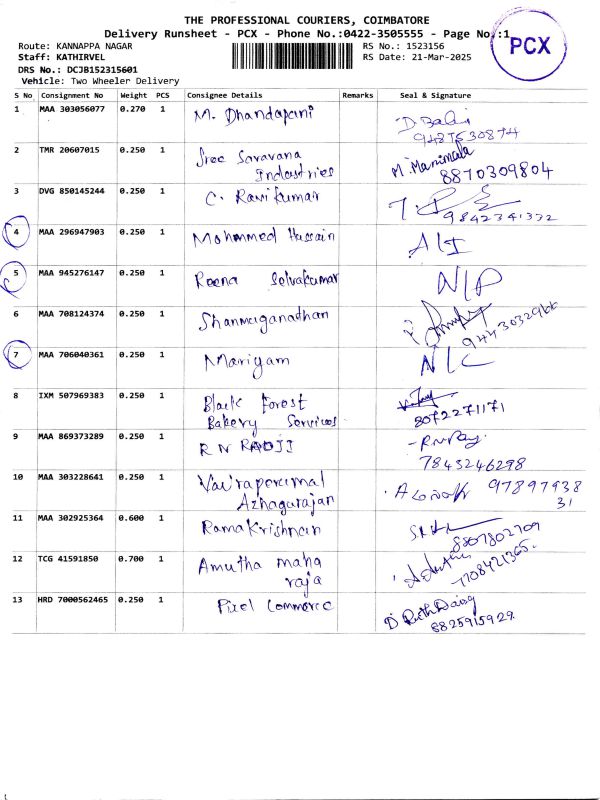 THE PROFESSIONAL COURIERS, COIMBATORE
Delivery Runsheet - PCX - Phone No.:0422-3505555 - Page No.:1
PCX
Route: KANNAPPA NAGAR RS No.: 1523156
Staff: KATHIRVEL RS Date: 21-Mar-2025
DRS No.: DCJB152315601
Vehicle: Two Wheeler Delivery
S No Consignment No Weight PCS Consignee Details Remarks Seal & Signature
1 MAA 303056077 0.270 1 M. Dhandapani
9487530874
2 TMR 20607015 0.250 1 Sree Saravana M. Manimala
Industries 8870309804
3 DVG 850145244 0.250 1 C. Ravikumar
9842341332
4 MAA 296947903 0.250 1 Mohammed Hussain
5 MAA 945276147 0.250 1 Reena Selvakumar N/P
6 MAA 708124374 0.250 1 Shanmuganadhan
9443032966
7 MAA 706040361 0.250 1 Mariyam N/C
8 IXM 507969383 0.250 1 Black Forest
Bakery Services 8072271171
9 MAA 869373289 0.250 1 R N RAOJI
7843246298
10 MAA 303228641 0.250 1 Vairaperumal 97897938
Azhagurajan 31
11 MAA 302925364 0.600 1 Ramakrishnan
8807802709
12 TCG 41591850 0.700 1 Amutha maha
raja 7708421365.
13 HRD 7000562465 0.250 1 Pixel Commerce D Ruth Daisy
8825915929